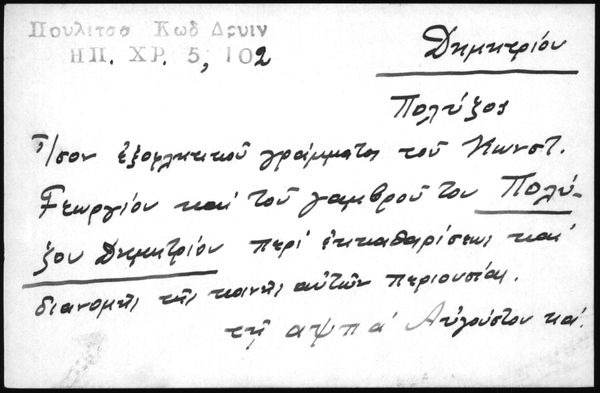 Πουλιτσα Κωδ Δρυιν
ΗΠ. ΧΡ. 5, 102
Δημητρίου
Πολύζος
Ἴσον ἐξοφλητικοῦ γράμματος τοῦ Κωνστ.
Γεωργίου καί τοῦ γαμβροῦ του Πολύ-
ζου Δημητρίου περί ἐκκαθαρίσεως καί
διανομῆς τῆς κοινῆς αὐτῶν περιουσίας.
τῇ αψπα' Αὐγούστου κα'.